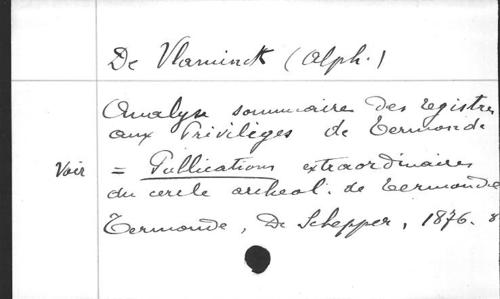 De Vlaminck (Alph.)
Analyse sommaire des registres
aux Privilèges de Termonde
Voir = Publications extraordinaires
du cercle archéol. de Termonde
Termonde, De Schepper, 1876. 8